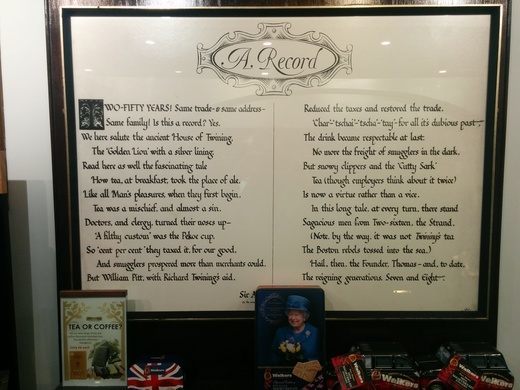 A. Record
TWO-FIFTY YEARS! Same trade & same address-
Same family! Is this a record? Yes.
We here salute the ancient House of Twining,
The 'Golden Lion' with a silver lining.
Read here as well the fascinating tale
How tea, at breakfast, took the place of ale.
Like all Man's pleasures, when they first begin,
Tea was a mischief, and almost a sin.
Doctors, and clergy, turned their noses up-
'A filthy custom' was the Pekoe cup.
So 'cent per cent' they taxed it, for our good,
And smugglers prospered more than merchants could.
But William Pitt, with Richard Twining's aid,
Reduced the taxes and restored the trade.
'Char'-'tschai'-'tscha'-'tay'- for all it's dubious past-
The drink became respectable at last:
No more the freight of smugglers in the dark,
But snowy clippers and the 'Cutty Sark'
Tea (though employers think about it twice)
Is now a virtue rather than a vice.
In this long tale, at every turn, there stand
Sagacious men from Two-sixteen, the Strand.
(Note, by the way, it was not Twining's tea
The Boston rebels tossed into the sea.)
Hail, then, the Founder, Thomas- and, to date,
The reigning generations, Seven and Eight-.
Sir A
TEA OR COFFEE?
Walkers
Walkers
Walkers
Walkers
Walkers